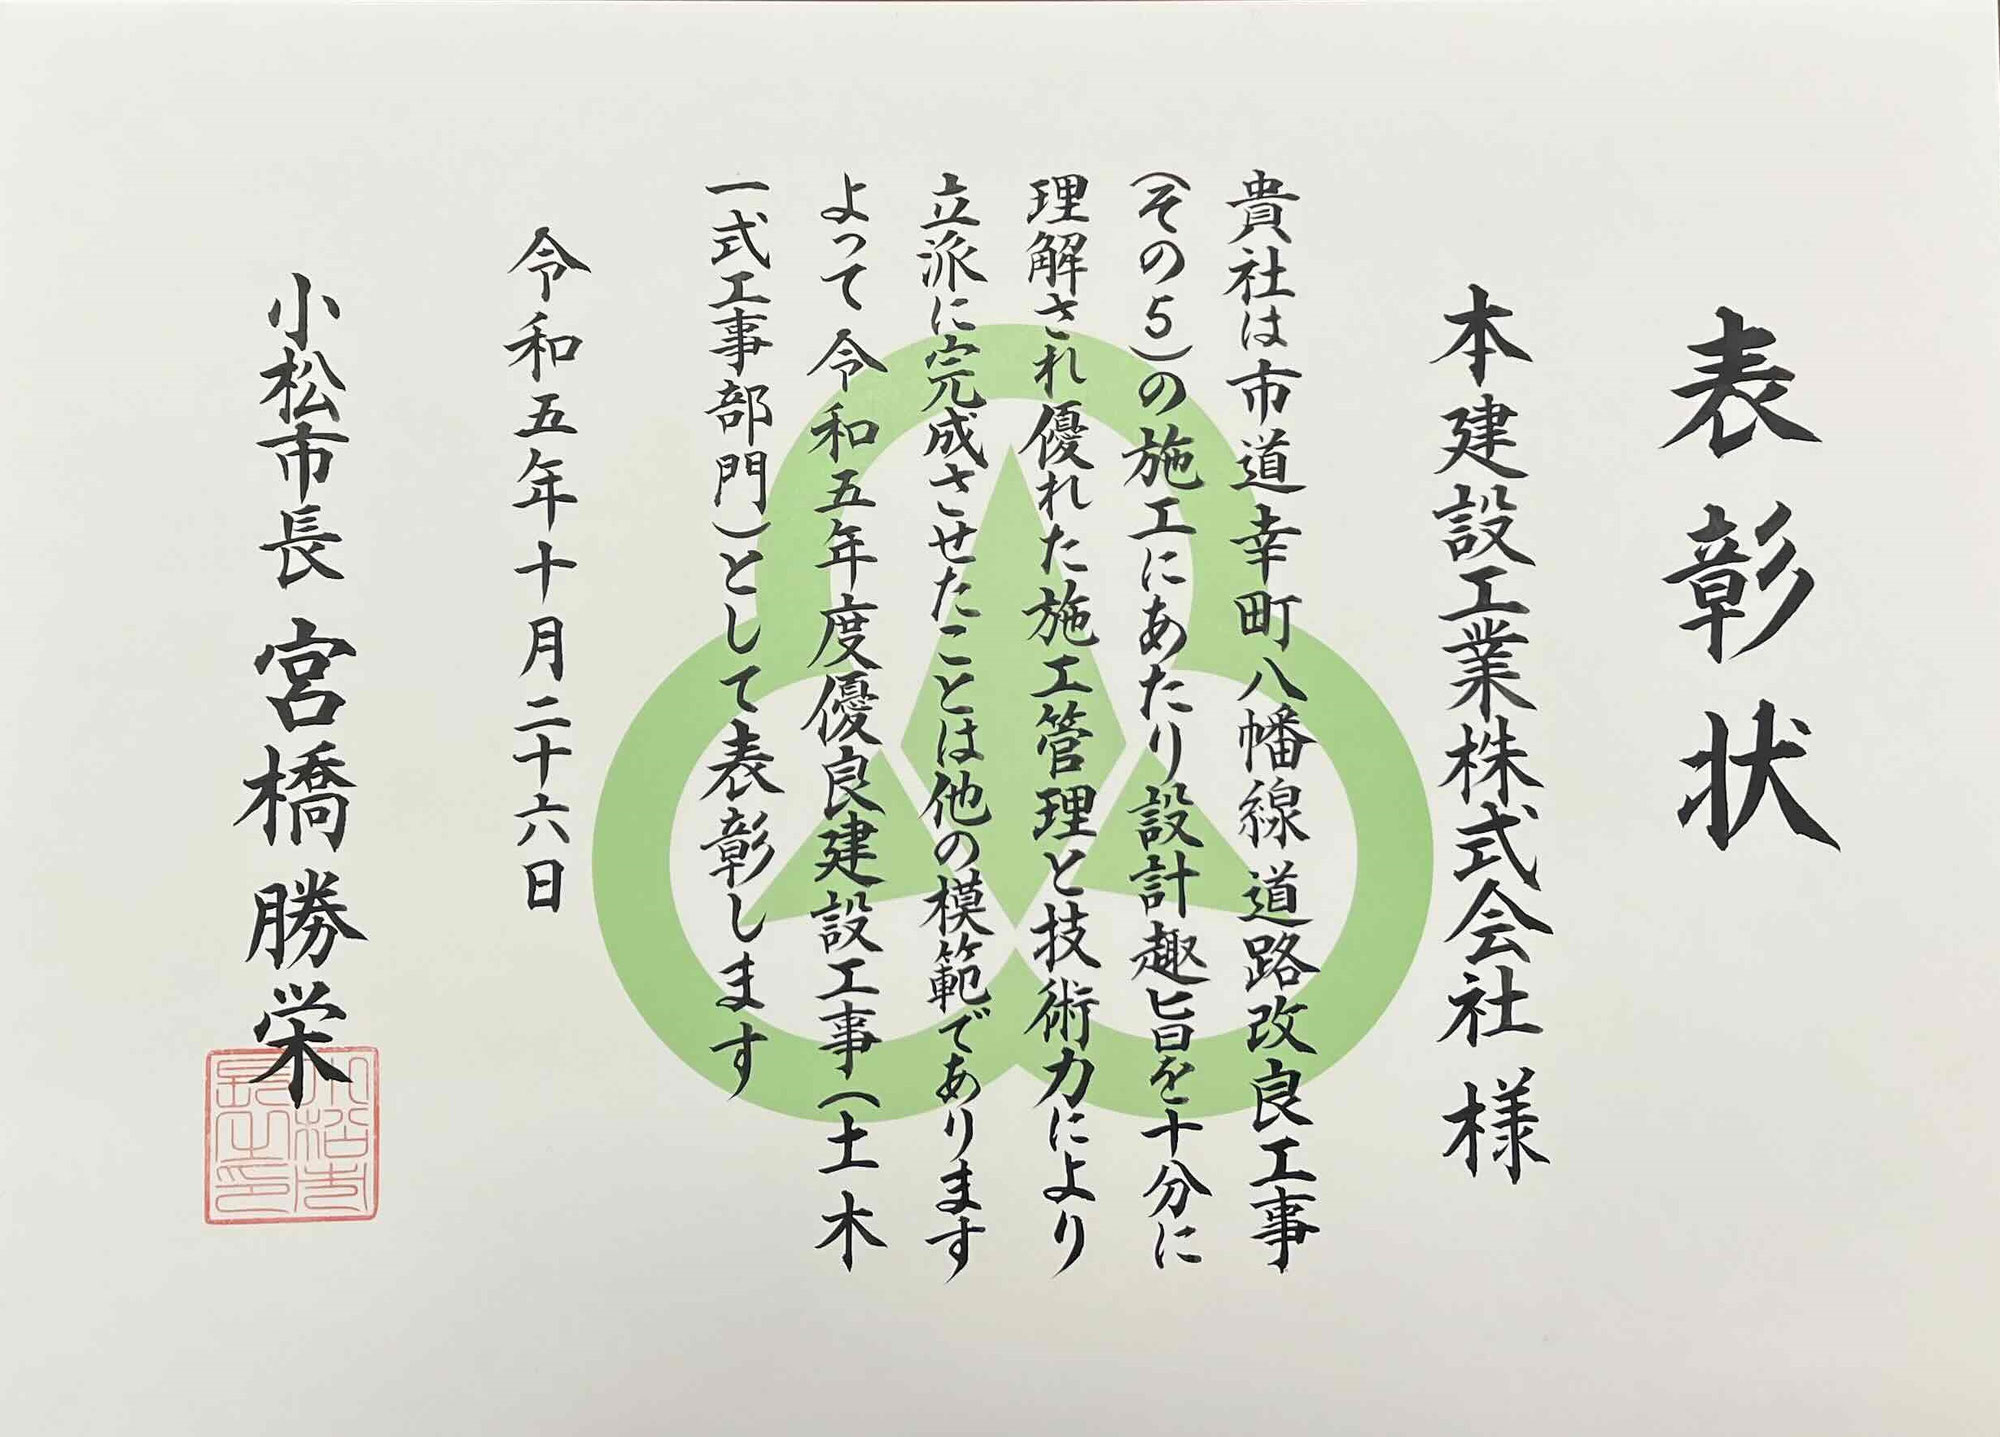 表彰状
本建設工業株式会社 様
貴社は市道幸町八幡線道路改良工事
(その5)の施工にあたり設計趣旨を十分に
理解され優れた施工管理と技術力により
立派に完成させたことは他の模範であります
よって令和五年度優良建設工事(土木
一式工事部門)として表彰します
令和五年十月二十六日
小松市長 宮橋勝栄
小松市
長之印